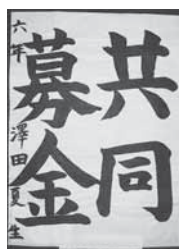 共同
募金
六年 澤田夏生